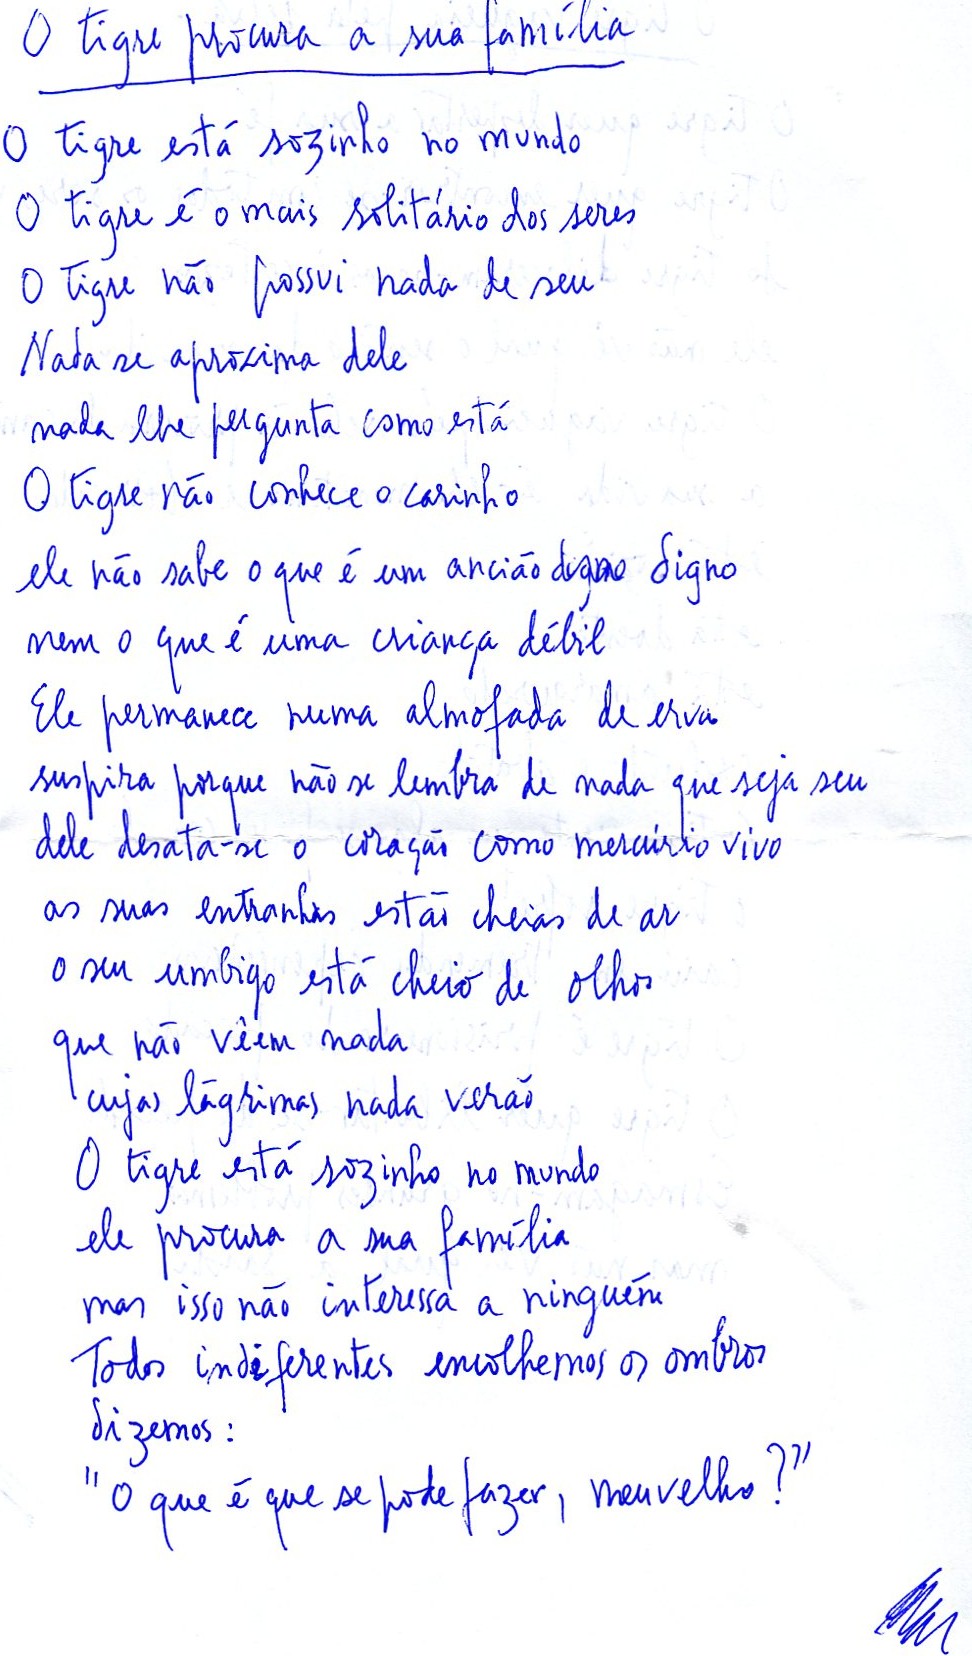 O tigre procura a sua família
O tigre está sozinho no mundo
O tigre é o mais solitário dos seres
O tigre não possui nada de seu
Nada se aproxima dele
nada lhe pergunta como está
O tigre não conhece o carinho
ele não sabe o que é um ancião digno digno
nem o que é uma criança débil
Ele permanece numa almofada de erva
suspira porque não se lembra de nada que seja seu
dele desata-se o coração como mercúrio vivo
as suas entranhas estão cheias de ar
o seu umbigo está cheio de olhos
que não vêem nada
cujas lágrimas nada verão
O tigre está sozinho no mundo
ele procura a sua família
mas isso não interessa a ninguém
Todos indiferentes encolhemos os ombros
dizemos:
"O que é que se pode fazer, meu velho?"